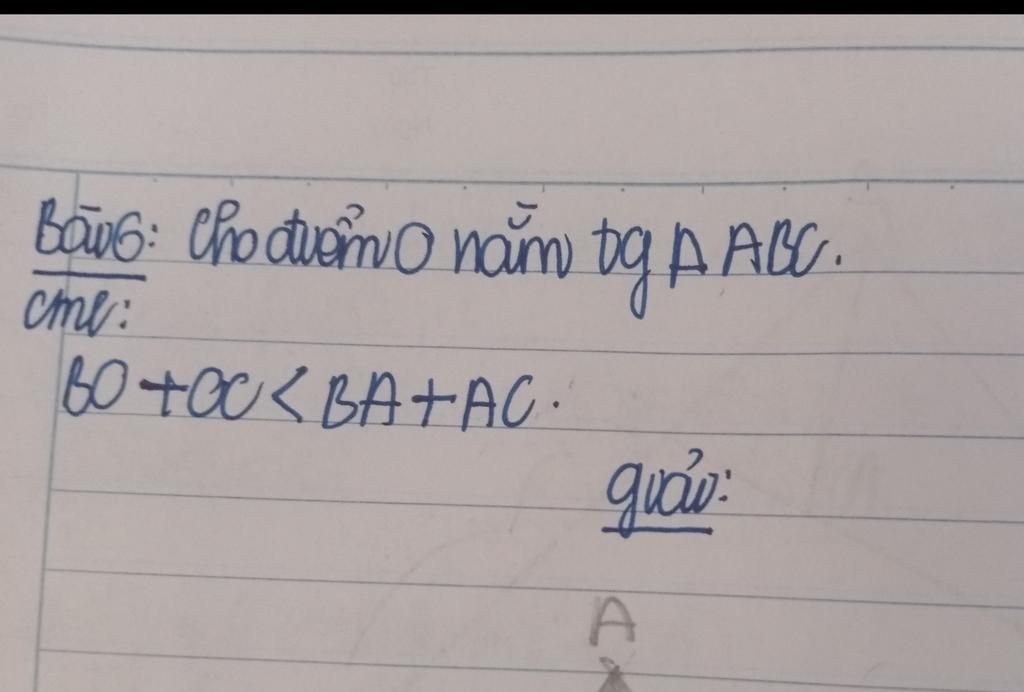 Bài 6: Cho điểm O nằm tg Δ ABC.
cmr:
BO + OC < BA + AC.
giải:
A